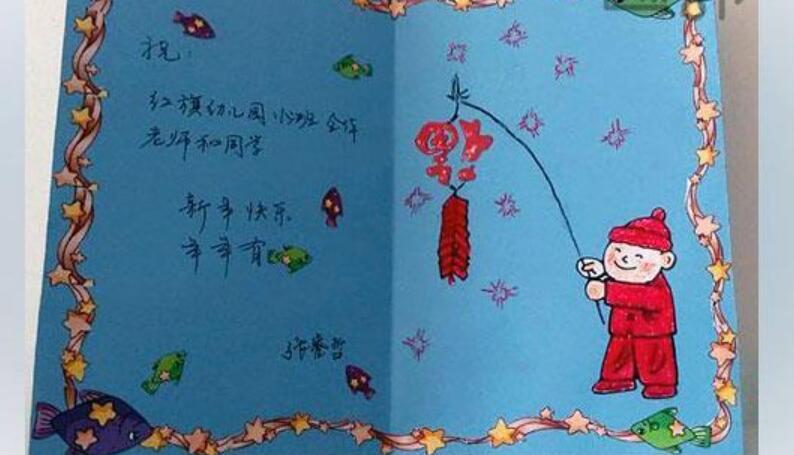 祝:
红旗幼儿园小班全体
老师和同学
新年快乐
年年有
张睿哲